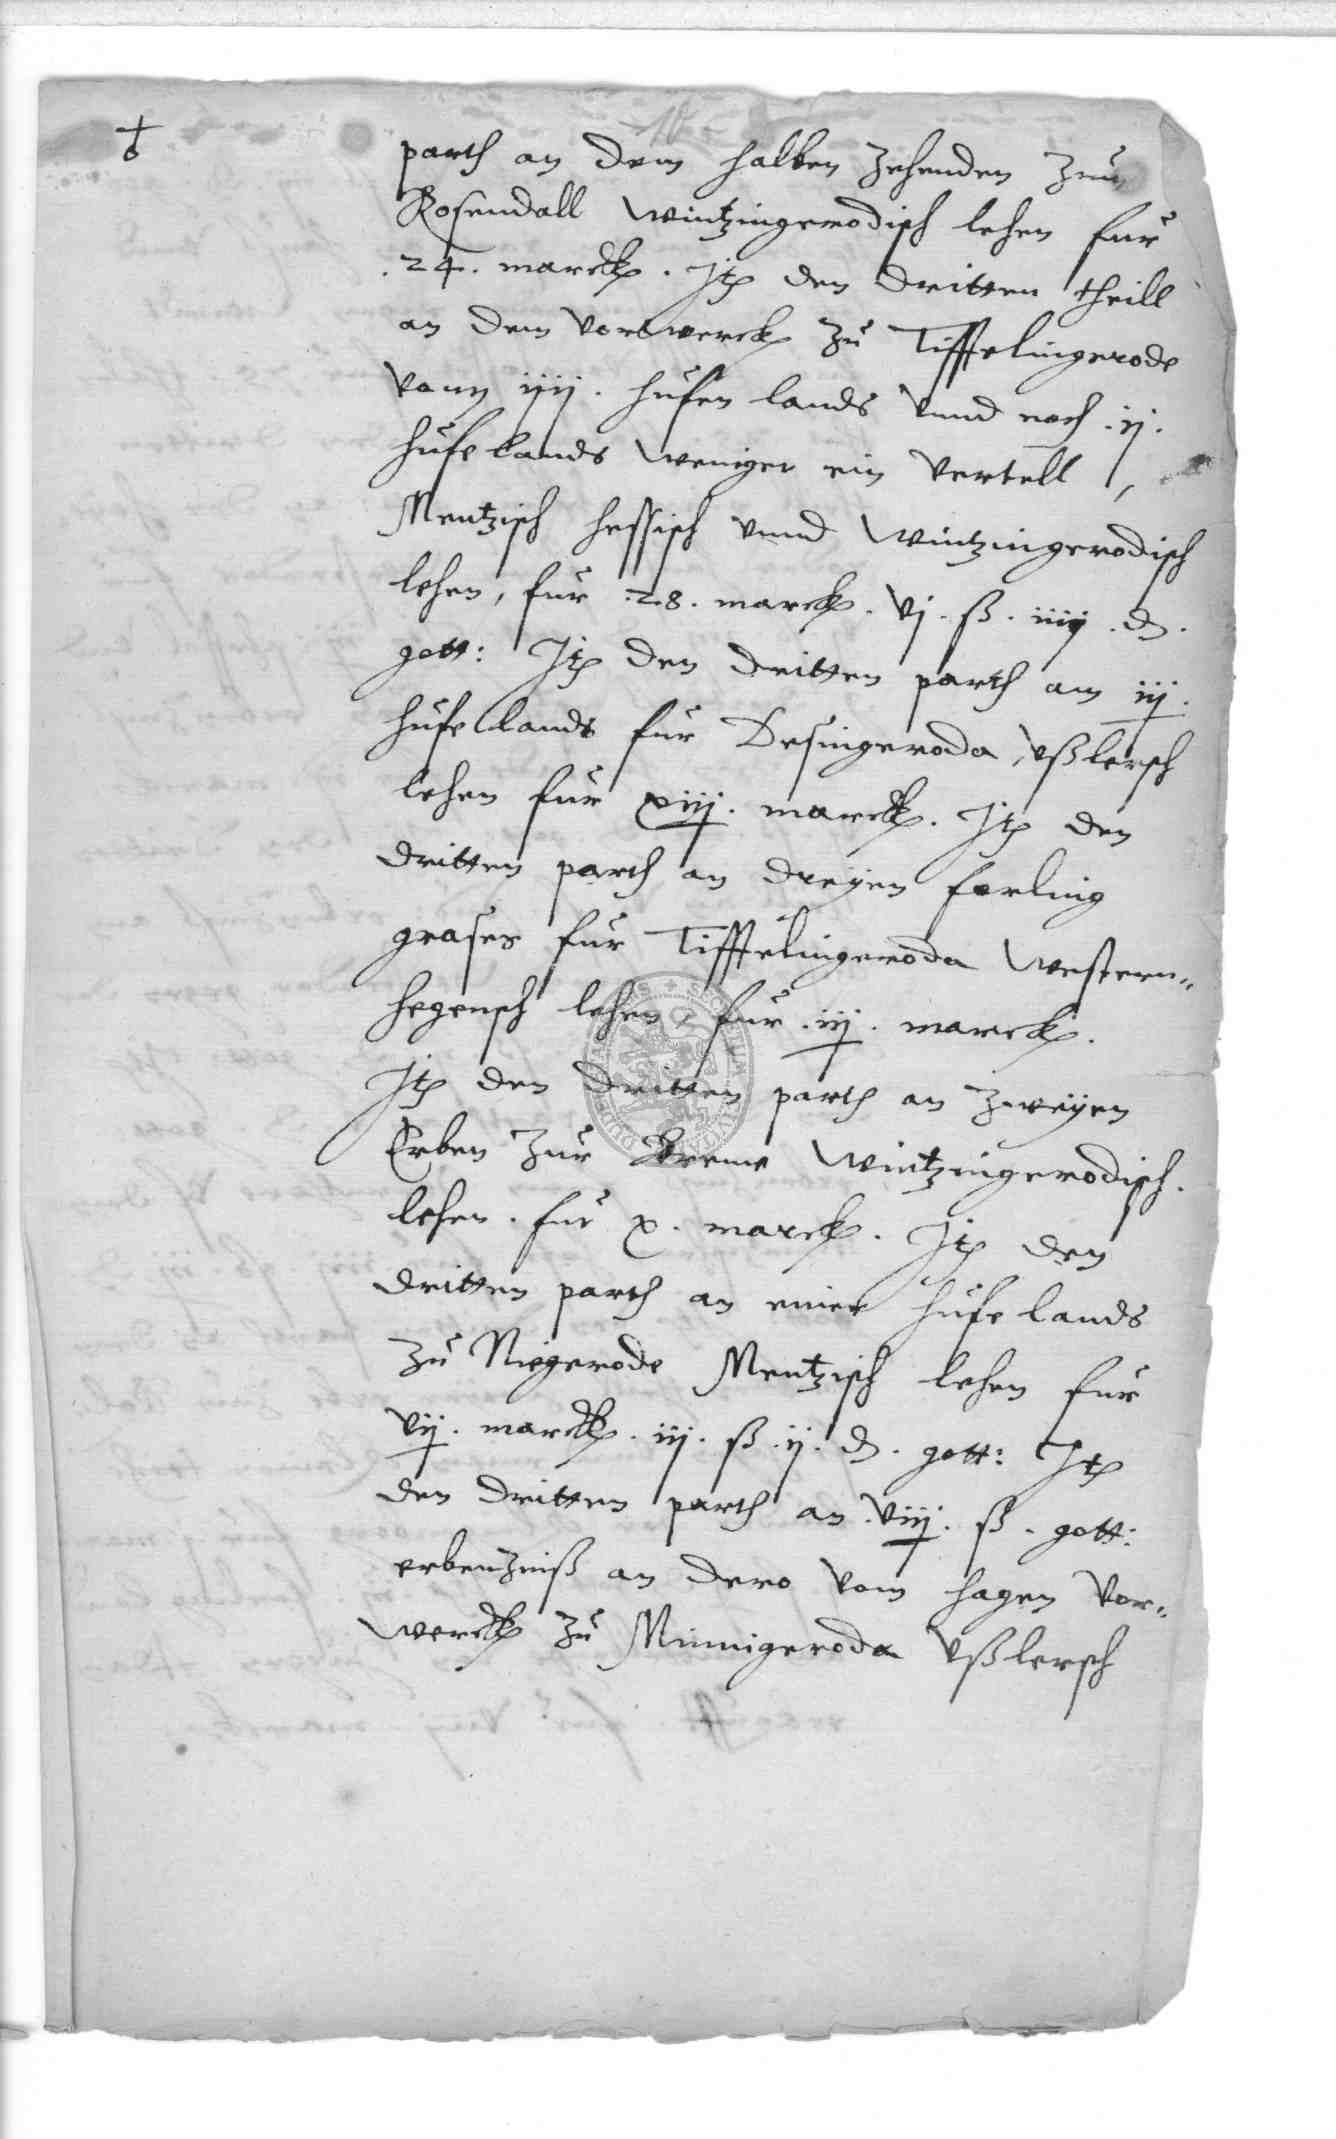 parth an dem halben Zehenden Zum
Rosendall Wintzingerodisch lehen fur
.24. marck. Jt den dritten theill
an dem Vorwerck Zu Tifftelingerode
Vonn iiij. hufen lands Vnnd noch .ij.
hufe lands Weniger ein Vertell,
Mentzisch hessisch vnnd Wintzingerodisch
lehen, fur .28. marck. vj. ß. iiij. d.
gott: Jt den dritten parth am iij.
hufe lands fur Desingeroda, Vßlersch
lehen fur xiij. marck. Jt den
dritten parth an dreyen forling
grases fur Tifftelingeroda Western„
hegensch lehen, fur .iij. marck.
Jt den dritten parth an zweyen
Erben Zur Breme Wintzingerodisch.
lehen. fur x. marck. Jt den
dritten parth an einer hufe lands
Zu Niegerode Mentzisch lehen fur
vij. marck. iij. ß .ij. d. gott: Jt
den dritten parth an .viij. ß. gott:
erbenzinß an dero vom hagen Vor„
werck Zu Minnigeroda Vßlersch